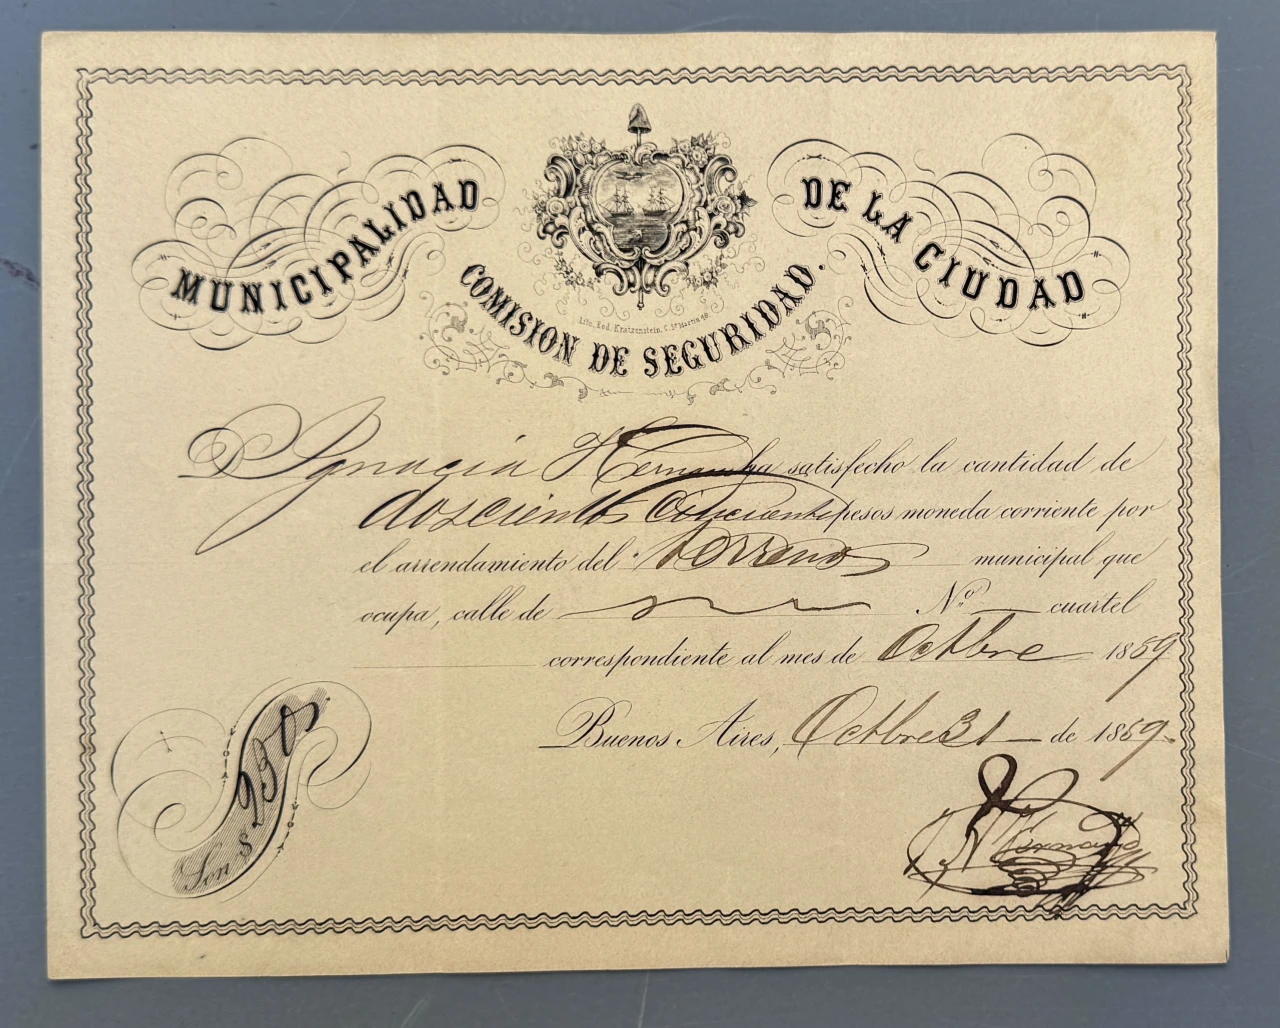 MUNICIPALIDAD DE LA CIUDAD
COMISION DE SEGURIDAD.
Lito. Rod. Kratzenstein, C.
D Ignacio Hernandz ha satisfecho la cantidad de
doscientos cincuenta pesos moneda corriente por
el arrendamiento del terreno municipal que
ocupa, calle de N.º cuartel
correspondiente al mes de Octbre 1869
Buenos Aires, Octbre 31 de 1869.
Son $ 250